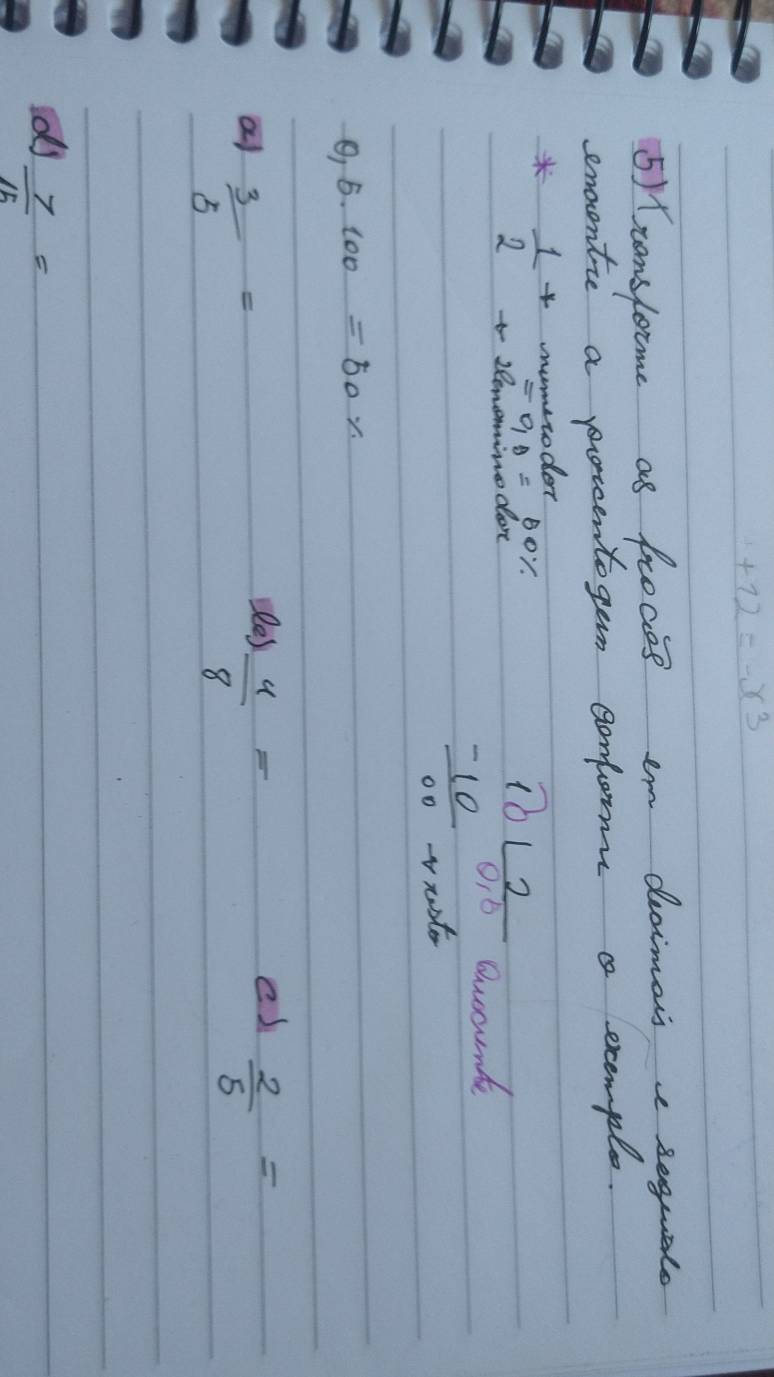 +12 = -x³
5) Transforme as frações em decimais e seguida
encontre a porcentagem conforme o exemplo.
* 1/2 → numerador = 0,5 = 50% → denominador
10 | 2
-10 0,5 Quociente
00 → resto
0,5 . 100 = 50%
a) 3/5 = b) 4/8 = c) 2/5 =
d) 7/15 =